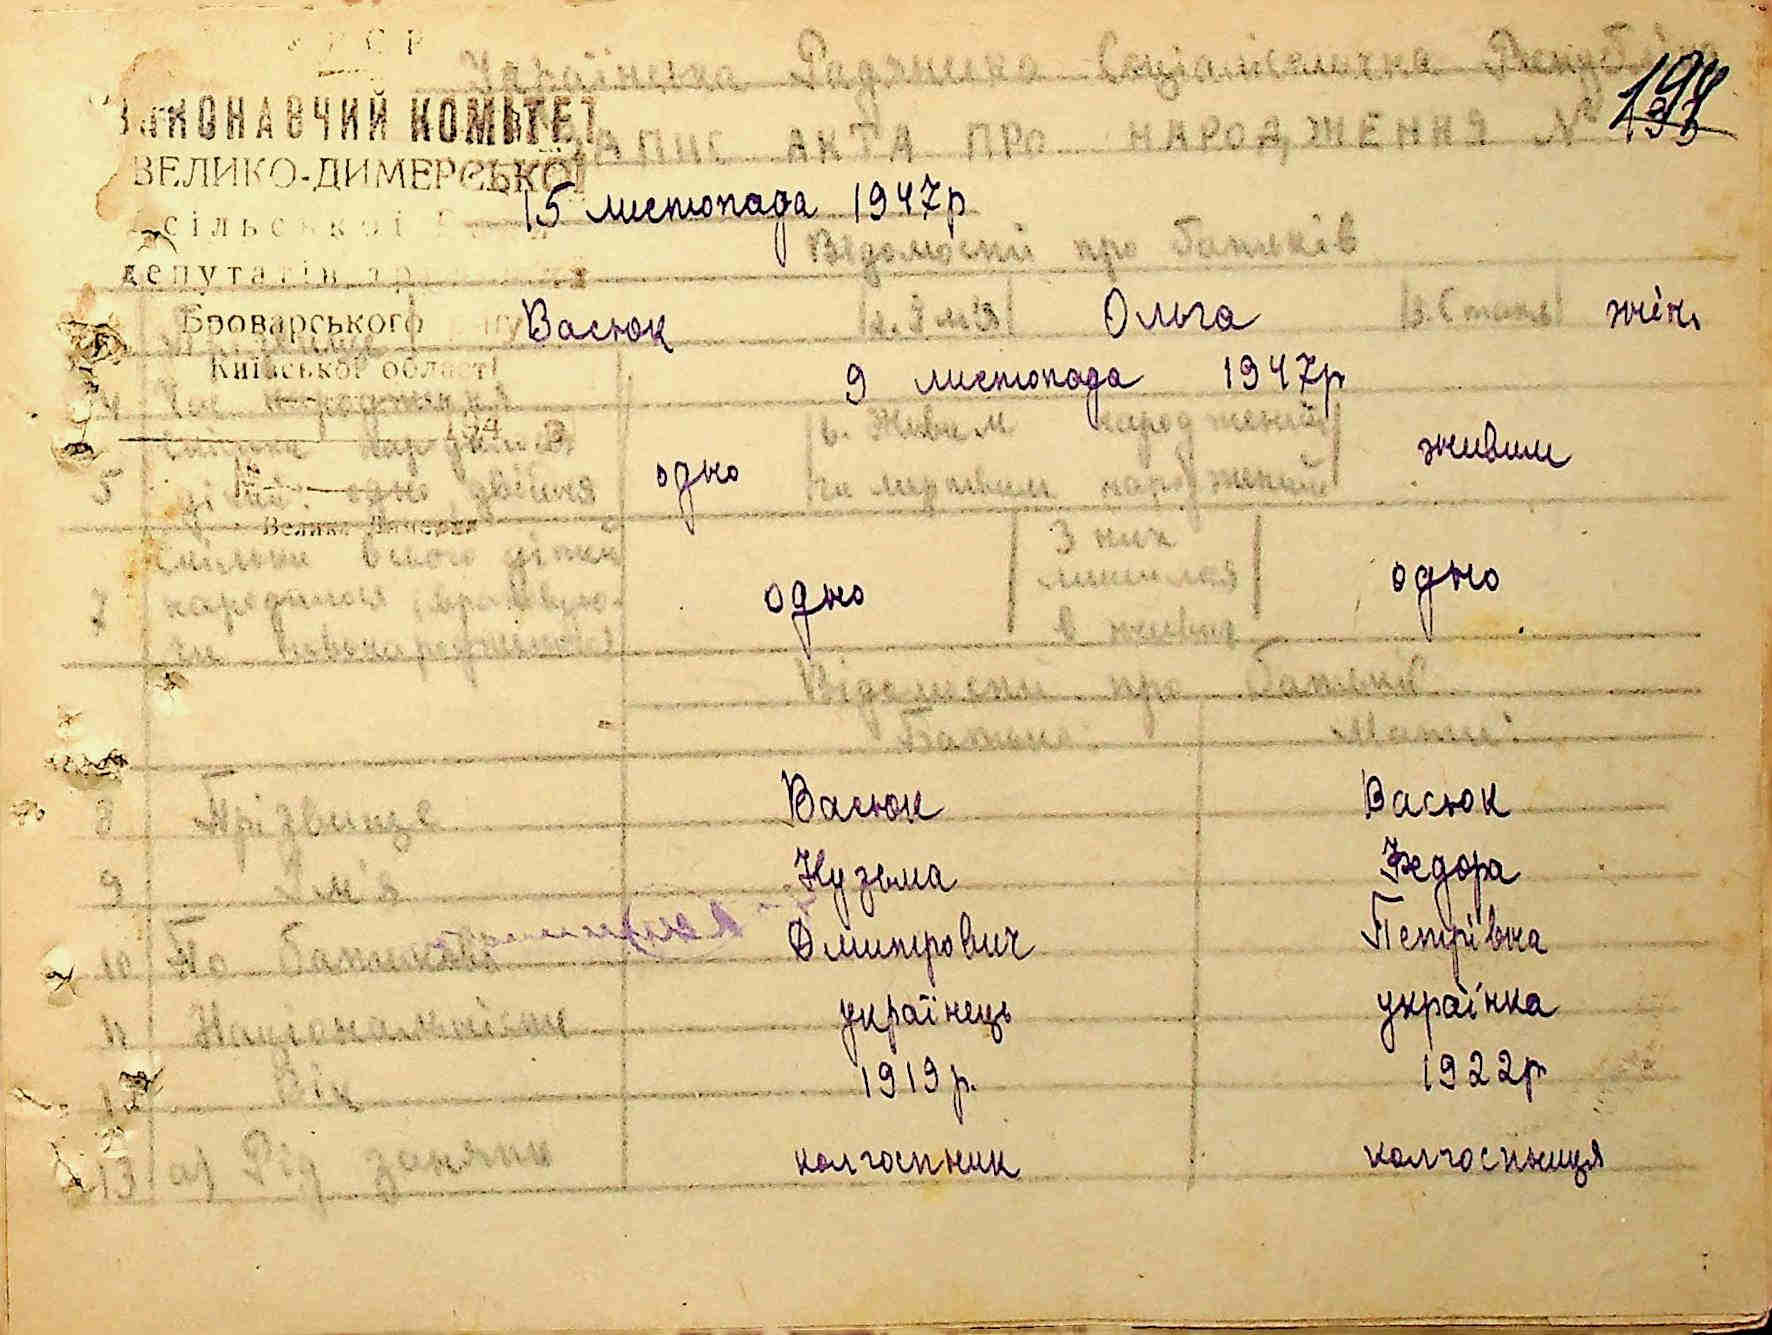 УРСР
Українська Радянська Соціалістична Республіка
ВИКОНАВЧИЙ КОМІТЕТ
ЗАПИС АКТА ПРО НАРОДЖЕННЯ №
ВЕЛИКО-ДИМЕРСЬКОЇ
15 листопада 1947р
сільської Ради
Відомості про батьків
депутатів
Броварського
Васюк 2. Ім'я Ольга 3. Стать жін.
Київської області
4 Час народження 9 листопада 1947р
194
5 Скільки народилося дітей: одно двійня одно 6. Живим народжений чи мертвим народжений живим
Велика Димерка
7 Скільки всього дітей народила одно З них лишилося в живих одно
Відомости про батьків
Батько: Мати:
8 Прізвище Васюк Васюк
9 Ім'я Кузьма Федора
10 По батькові Дмитрович Петрівна
11 Національність українець українка
12 Вік 1919р. 1922р
13 а) Рід занять колгоспник колгоспниця